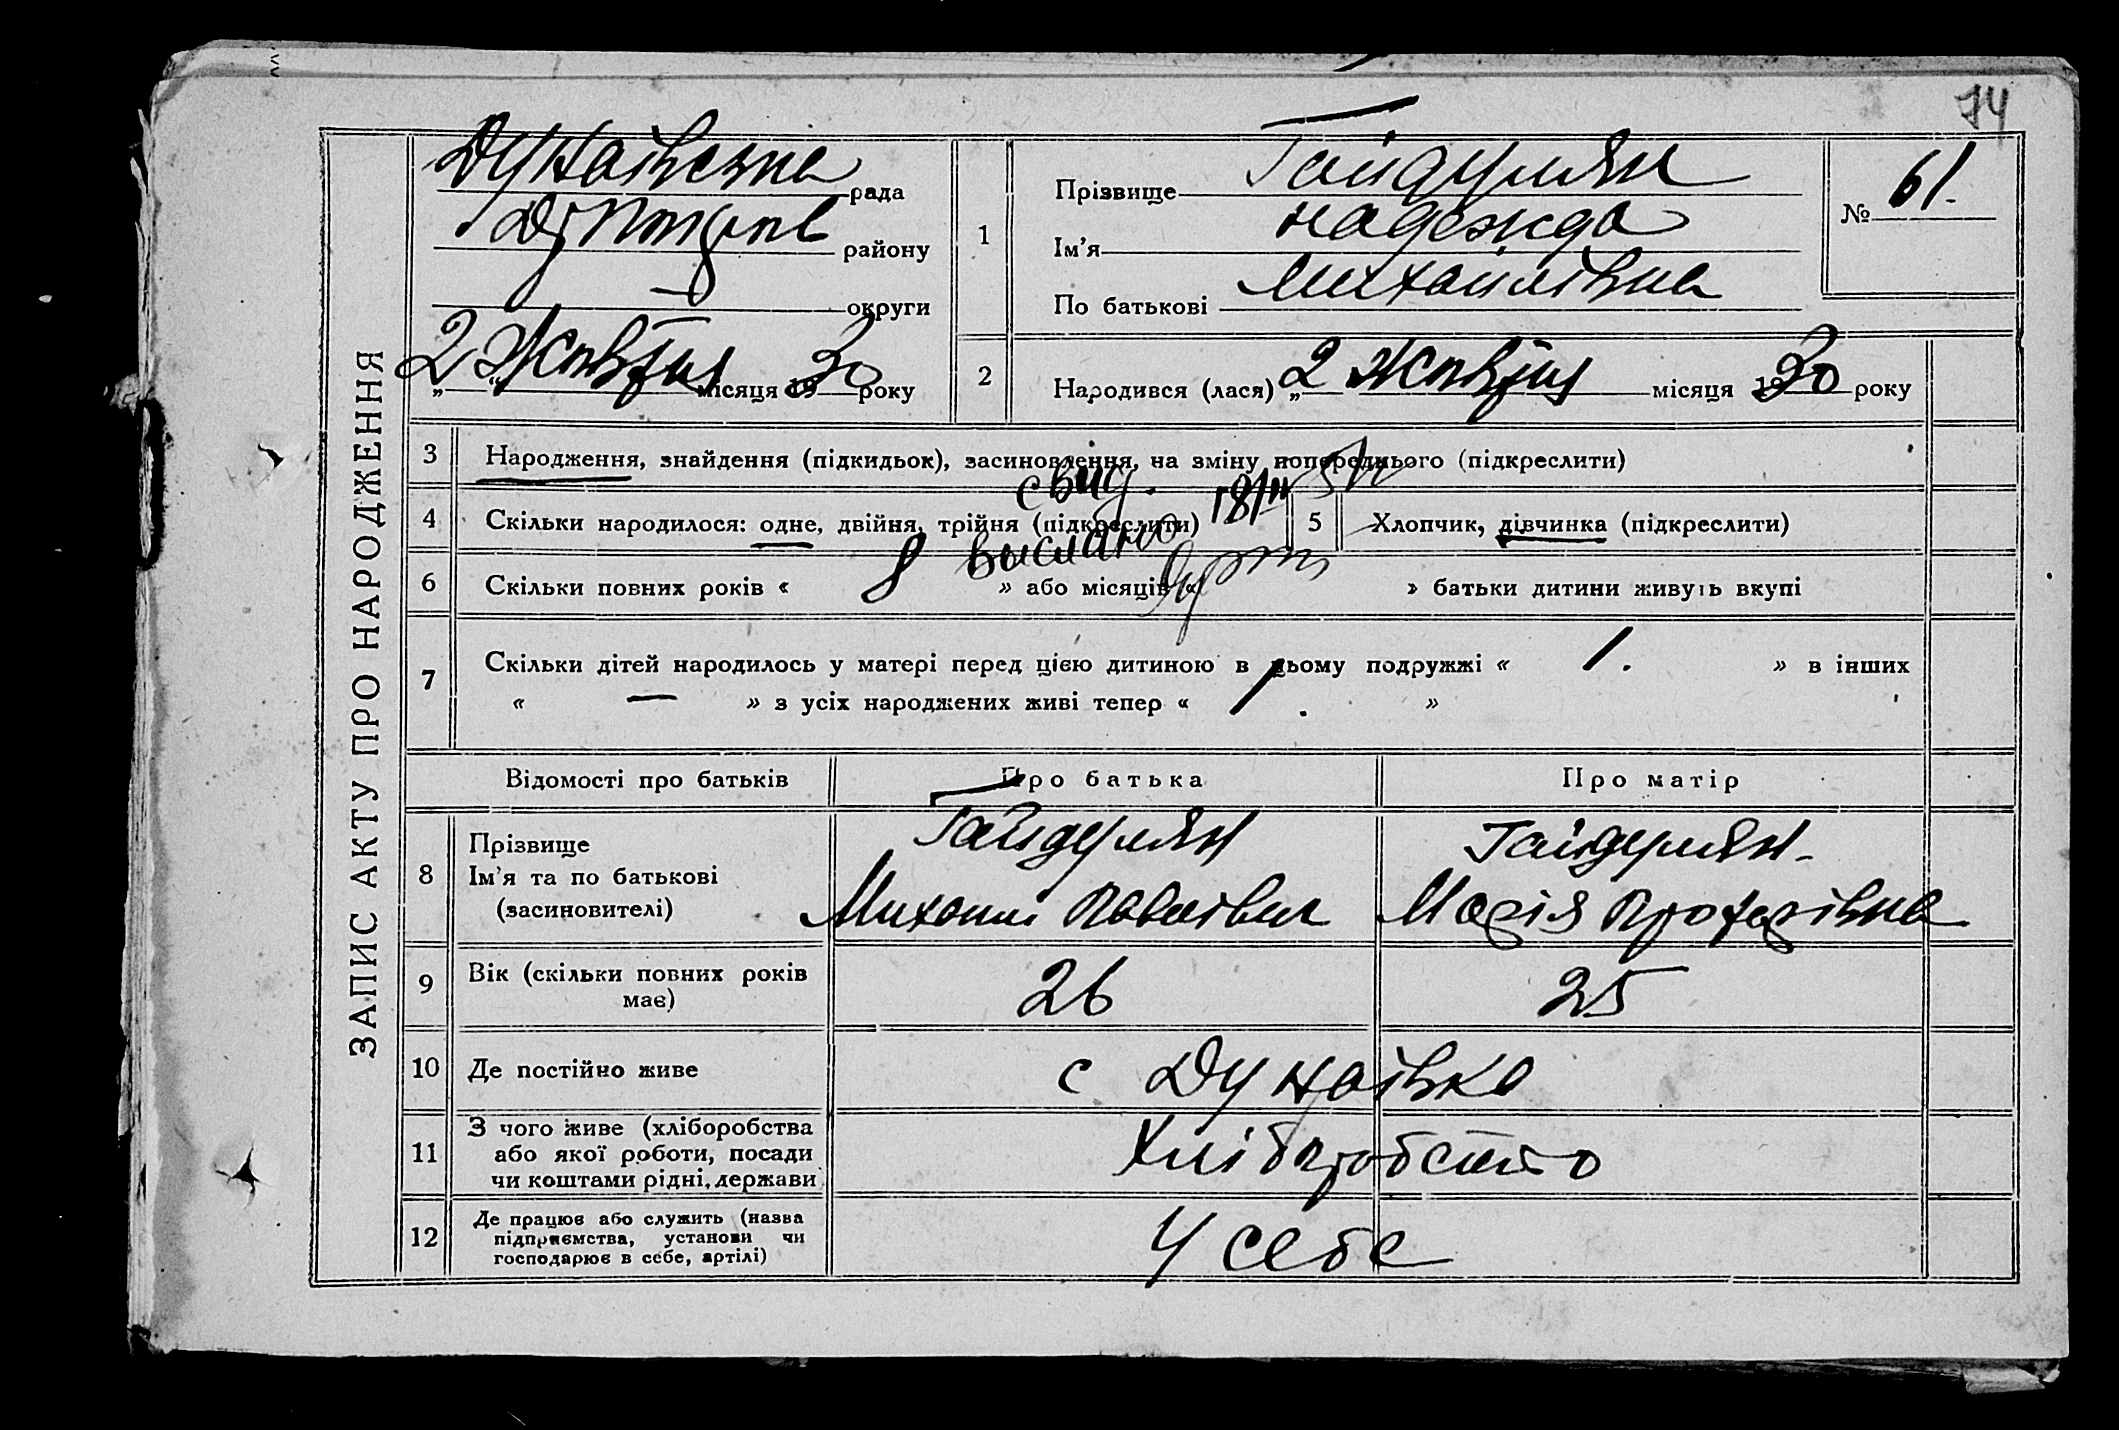 74
ЗАПИС АКТУ ПРО НАРОДЖЕННЯ
Дунаівська рада
району
округи
2 Жовтня місяця 1930 року
1
Прізвище Гайдулян
Ім'я Надежда
По батькові Михайлівна
№ 61.
2 Народився (лася) „2 Жовтня місяця 1930 року
3 Народження, знайдення (підкидьок), засиновлення, на зміну попереднього (підкреслити)
свид. 18/II 51
4 Скільки народилося: одне, двійня, трійня (підкреслити)
5 Хлопчик, дівчинка (підкреслити)
выслано
6 Скільки повних років « 8 » або місяців « » батьки дитини живуть вкупі
7 Скільки дітей народилось у матері перед цією дитиною в цьому подружжі « 1. » в інших
« — » з усіх народжених живі тепер « 1. »
Відомості про батьків Про батька Про матір
8 Прізвище
Ім'я та по батькові
(засиновителі)
Гайдулян
Михаил Павлівич
Гайдулян.
Марія Прохорівна
9 Вік (скільки повних років
має)
26
25
10 Де постійно живе
с Дунаівка
11 З чого живе (хліборобства
або якої роботи, посади
чи коштами рідні, держави
Хліборобство
12 Де працює або служить (назва
підприємства, установи чи
господарює в себе, артілі)
У себе